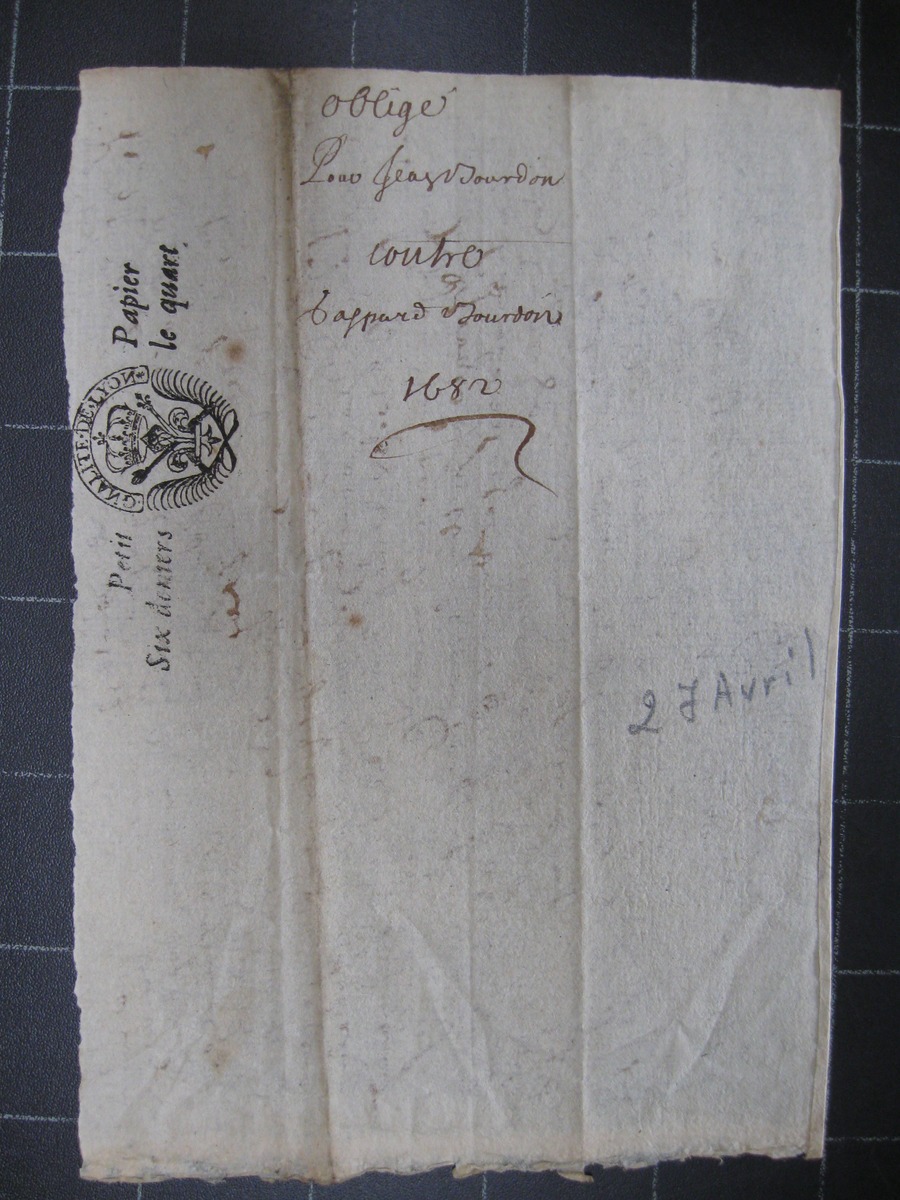 oblige
Pour Jean Bourdon
contre
Gaspard Bourdon
1682
Petit Papier
Six deniers le quart
GNALITE·DE·LYON
27 Avril